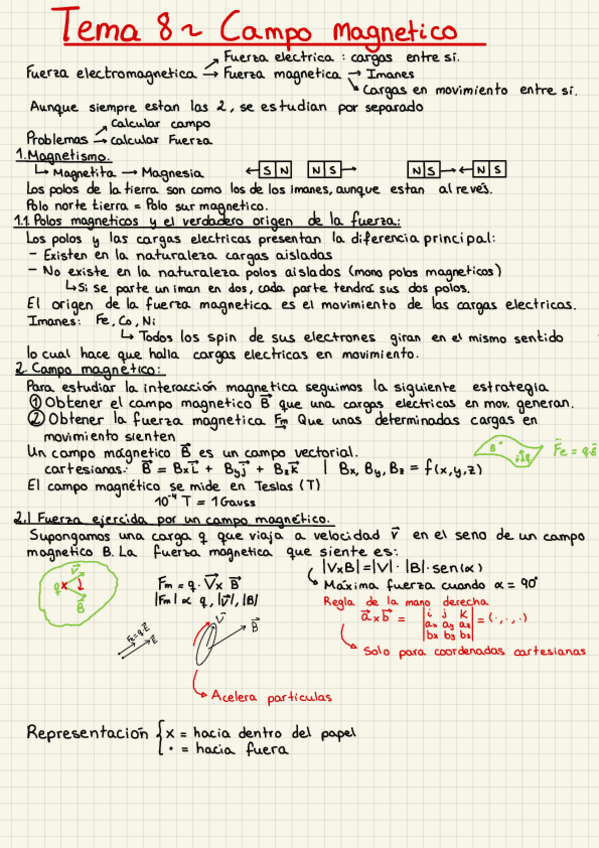 Tema 8~ Campo magnetico
Fuerza electrica : cargas entre sí.
Fuerza electromagnetica → Fuerza magnetica → Imanes
Cargas en movimiento entre si.
Aunque siempre estan las 2, se estudian por separado
Calcular campo
Problemas → calcular Fuerza
1. Magnetismo.
↳ Magnetita → Magnesia ←[S|N] [N|S]→ [N|S]→ ←[N|S]
Los polos de la tierra son como los de los imanes, aunque estan al revés.
Polo norte tierra = Polo sur magnetico.
1.1 Polos magneticos y el verdadero origen de la fuerza:
Los polos y las cargas electricas presentan la diferencia principal:
- Existen en la naturaleza cargas aisladas
- No existe en la naturaleza polos aislados (mono polos magneticos)
↳ Si se parte un iman en dos, cada parte tendrá sus dos polos.
El origen de la fuerza magnetica es el movimiento de las cargas electricas.
Imanes: Fe, Co, Ni
↳ Todos los spin de sus electrones giran en el mismo sentido
lo cual hace que halla cargas electricas en movimiento.
2. Campo magnético:
Para estudiar la interacción magnetica seguimos la siguiente estrategia
① Obtener el campo magnetico B⃗ que una cargas electricas en mov. generan.
② Obtener la fuerza magnetica F⃗m Que unas determinadas cargas en
movimiento sienten
Un campo mágnetico B⃗ es un campo vectorial.
cartesianas: B⃗ = Bx i⃗ + By j⃗ + Bz k⃗ | Bx, By, Bz = f(x,y,z)
F⃗e = q·E⃗
El campo magnético se mide en Teslas (T)
10⁻⁴ T = 1 Gauss
2.1 Fuerza ejercida por un campo magnético.
Supongamos una carga q que viaja a velocidad v⃗ en el seno de un campo
magnetico B. La fuerza magnetica que siente es:
|VxB| = |V| · |B| · sen(α)
Máxima fuerza cuando α = 90°
q v⃗ B⃗
Fm = q · V⃗ x B⃗
|Fm| ∝ q, |v⃗|, |B|
Regla de la mano derecha
a⃗ x b⃗ = | i j k | = (·, ·, ·)
ax ay az
bx by bz
Solo para coordenadas cartesianas
Fe = q·E⃗
E⃗
V⃗ B⃗
Acelera particulas
Representación { x = hacia dentro del papel
· = hacia fuera